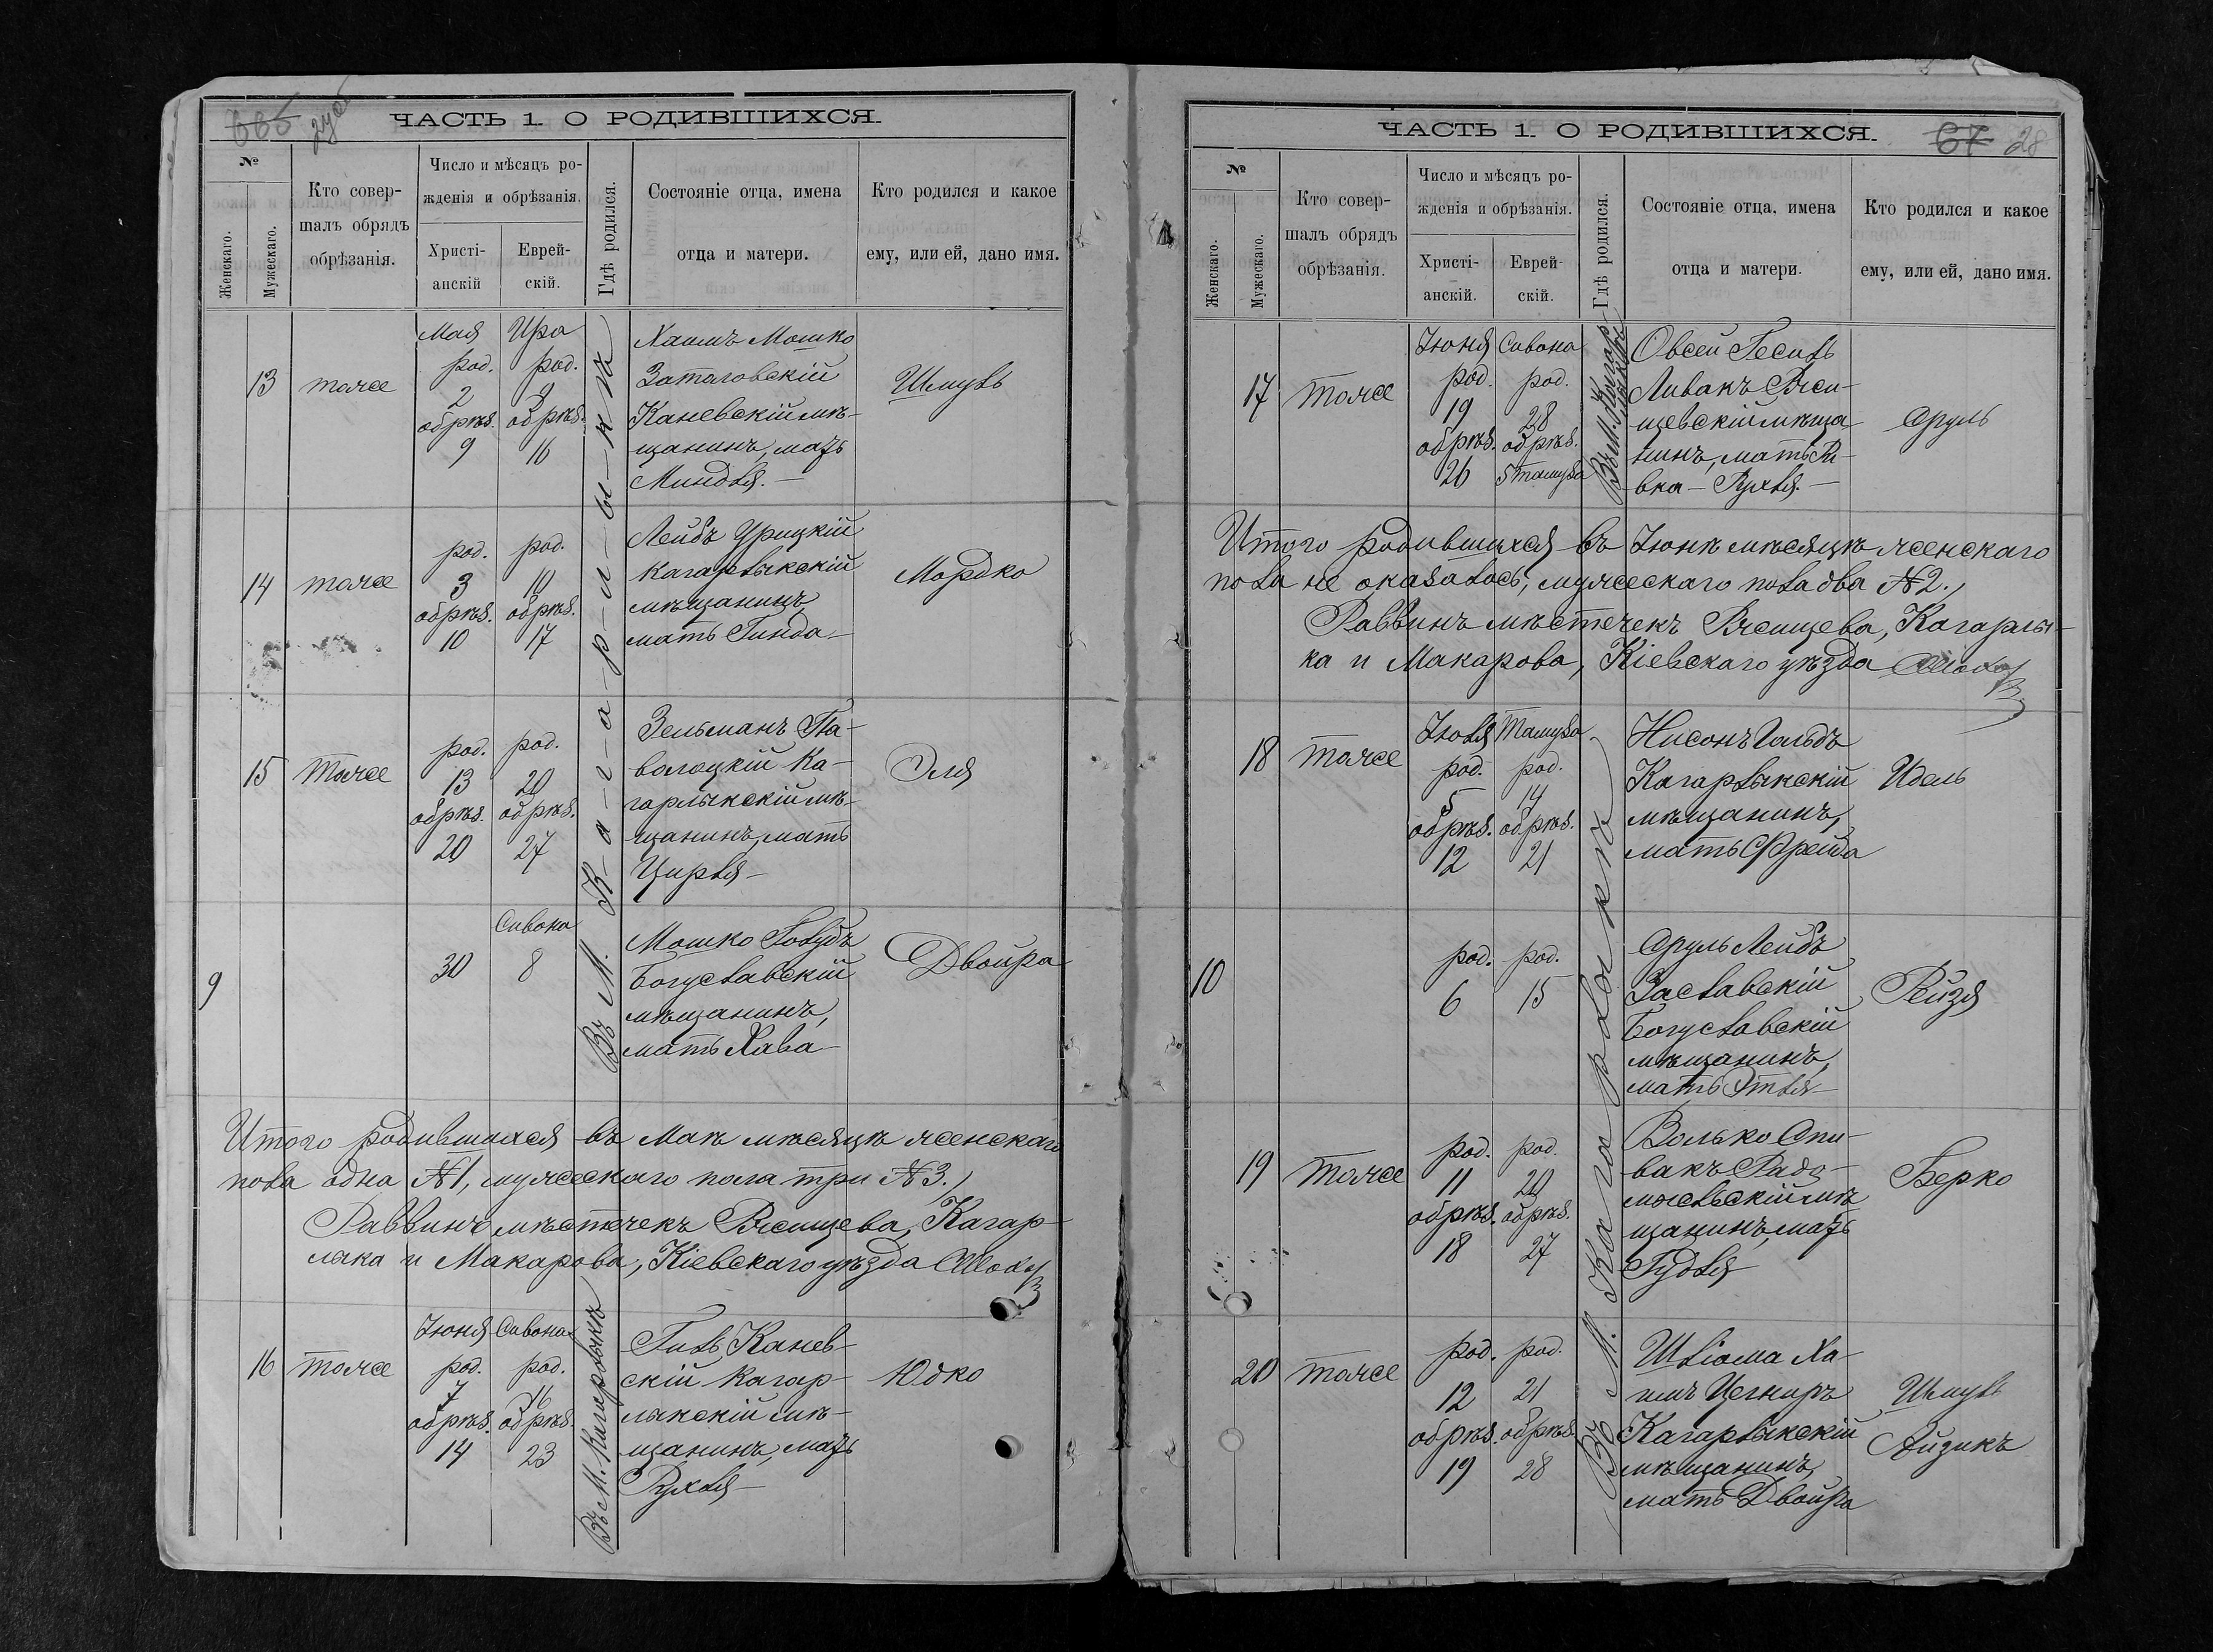 ЧАСТЬ 1. О РОДИВШИХСЯ.
№
Женскаго.
Мужескаго.
Кто совер-
шалъ обрядъ
обрѣзанія.
Число и мѣсяцъ ро-
жденія и обрѣзанія.
Христі-
анскій
Еврей-
скій.
Гдѣ родился.
Состояніе отца, имена
отца и матери.
Кто родился и какое
ему, или ей, дано имя.
Въ М. К-а-г-а-р-л-ы-к-ѣ
13
тоже
Мая
род.
2
обрѣз.
9
Ира
род.
9
обрѣз.
16
Хаимъ Мошко
Каневскій мѣ-
щанинъ, мать
Миндля.
Шмуль
14
тоже
род.
3
обрѣз.
10
род.
10
обрѣз.
17
Лейбъ Урицкій
Кагарлыкскій
мѣщанинъ,
мать Гинда
Мордко
15
тоже
род.
13
обрѣз.
20
род.
20
обрѣз.
27
Зельманъ Па-
волоцкій Ка-
гарлыкскій мѣ-
щанинъ, мать
Цирля
Эля
9
30
Сивона
8
Мошко Голубъ
Богуславскій
мѣщанинъ,
мать Хава
Двойра
Итого родившихся въ Маѣ мѣсяцѣ женскаго
пола одна №1, мужескаго пола три №3.,
Раввинъ мѣстечекъ Ржищева, Кагар-
лыка и Макарова, Кіевскаго уѣзда
16
тоже
Іюня
род.
7
обрѣз.
14
Сивона
род.
16
обрѣз.
23
Въ М. Кагарлыкѣ
Гиль Канев-
скій Кагар-
лыкскій мѣ-
щанинъ, мать
Рухля
Юдко
ЧАСТЬ 1. О РОДИВШИХСЯ.
67 28
№
Женскаго.
Мужескаго.
Кто совер-
шалъ обрядъ
обрѣзанія.
Число и мѣсяцъ ро-
жденія и обрѣзанія.
Христі-
анскій.
Еврей-
скій.
Гдѣ родился.
Состояніе отца, имена
отца и матери.
Кто родился и какое
ему, или ей, дано имя.
17
тоже
Іюня
род.
19
обрѣз.
26
Сивона
род.
28
обрѣз.
5 Тамуза
Въ М. Кагарлыкѣ
Овсей Гесиль
Ливакъ Ржи-
щевскій мѣща
нинъ, мать Ри-
вка - Рухля.
Сруль
Итого родившихся въ Іюнѣ мѣсяцѣ женскаго
пола не оказалось, мужескаго пола два №2.,
Раввинъ мѣстечекъ Ржищева, Кагарлы-
ка и Макарова, Кіевскаго уѣзда
Въ М. Кагарлыкѣ
18
тоже
Іюля
род.
5
обрѣз.
12
Тамуза
род.
14
обрѣз.
21
Нисонъ Гольдъ
Кагарлыкскій
мѣщанинъ,
мать Фрейда
Идель
10
род.
6
род.
15
Сруль Лейбъ
Заславскій
Богуславскій
мѣщанинъ,
мать Этля
Рейзя
19
тоже
род.
11
обрѣз.
18
род.
20
обрѣз.
27
Волько Спи-
вакъ Радо-
мысльскій мѣ
щанинъ, мать
Гудля
Берко
20
тоже
род.
12
обрѣз.
19
род.
21
обрѣз.
28
Шліома Ха-
имъ
Кагарлыкскій
мѣщанинъ,
мать Двойра
Шмуль
Айзикъ